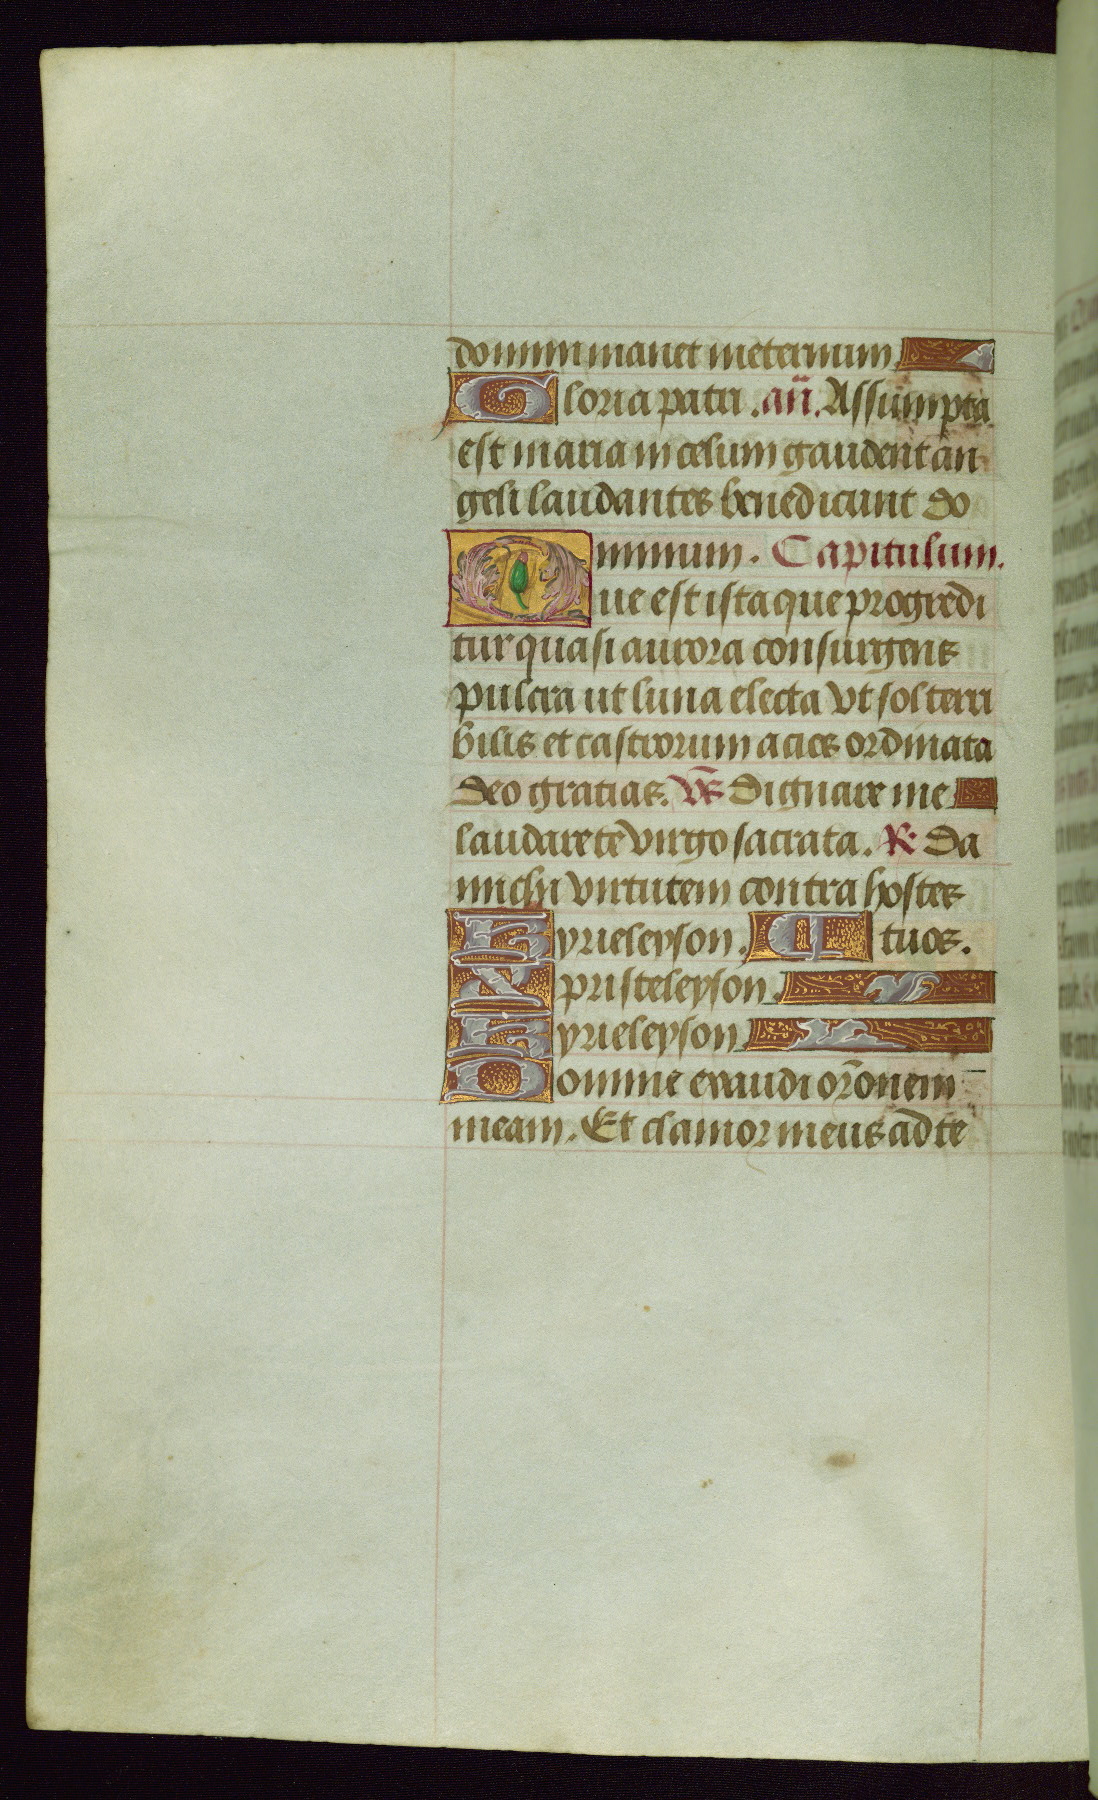 domini manet in eternum.
Gloria patri. añ. Assumpta
est maria in celum gaudent an
geli laudantes benedicunt do
minum. Capitulum.
Que est ista que progredi
tur quasi aurora consurgens
pulcra ut luna electa vt sol terri
bilis et castrorum acies ordinata
Deo gratias. Vs̄ Dignare me
laudare te virgo sacrata. R̷ Da
michi virtutem contra hostes
Kyrieleyson. ¶ tuos.
Xpristeleyson.
Kyrieleyson.
Domine exaudi or̄onem
meam. Et clamor meus ad te